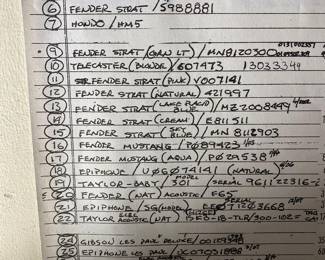 ⑥ FENDER STRAT / 5988881
⑦ HONDO / HM5
⑨ FENDER STRAT (GAN LT) / MN8120300
⑩ TELECASTER (BLONDE) / 607473 13033349
⑪ FENDER STRAT (PINK) V007141
⑫ FENDER STRAT (NATURAL) 421997
⑬ FENDER STRAT (LAKE PLACID BLUE) MZ2008499
⑭ FENDER STRAT (CREAM) E811511
⑮ FENDER STRAT (SKY BLUE) / MN 8112903
⑯ FENDER MUSTANG / P089423
⑰ FENDER MUSTANG (AQUA) / P029538
⑱ EPIPHONE / U06074141 (NATURAL)
⑲ TAYLOR-BABY / MODEL 301 SERIAL 961122316
⑳ FENDER (NAT) ACOUSTIC / F65
㉑ EPIPHONE / SG (MODEL) SERIAL 12023668
㉒ TAYLOR ELEC ACOUSTIC (NAT)
GIBSON LES PAUL DELUXE
㉕ EPIPHONE LES PAUL